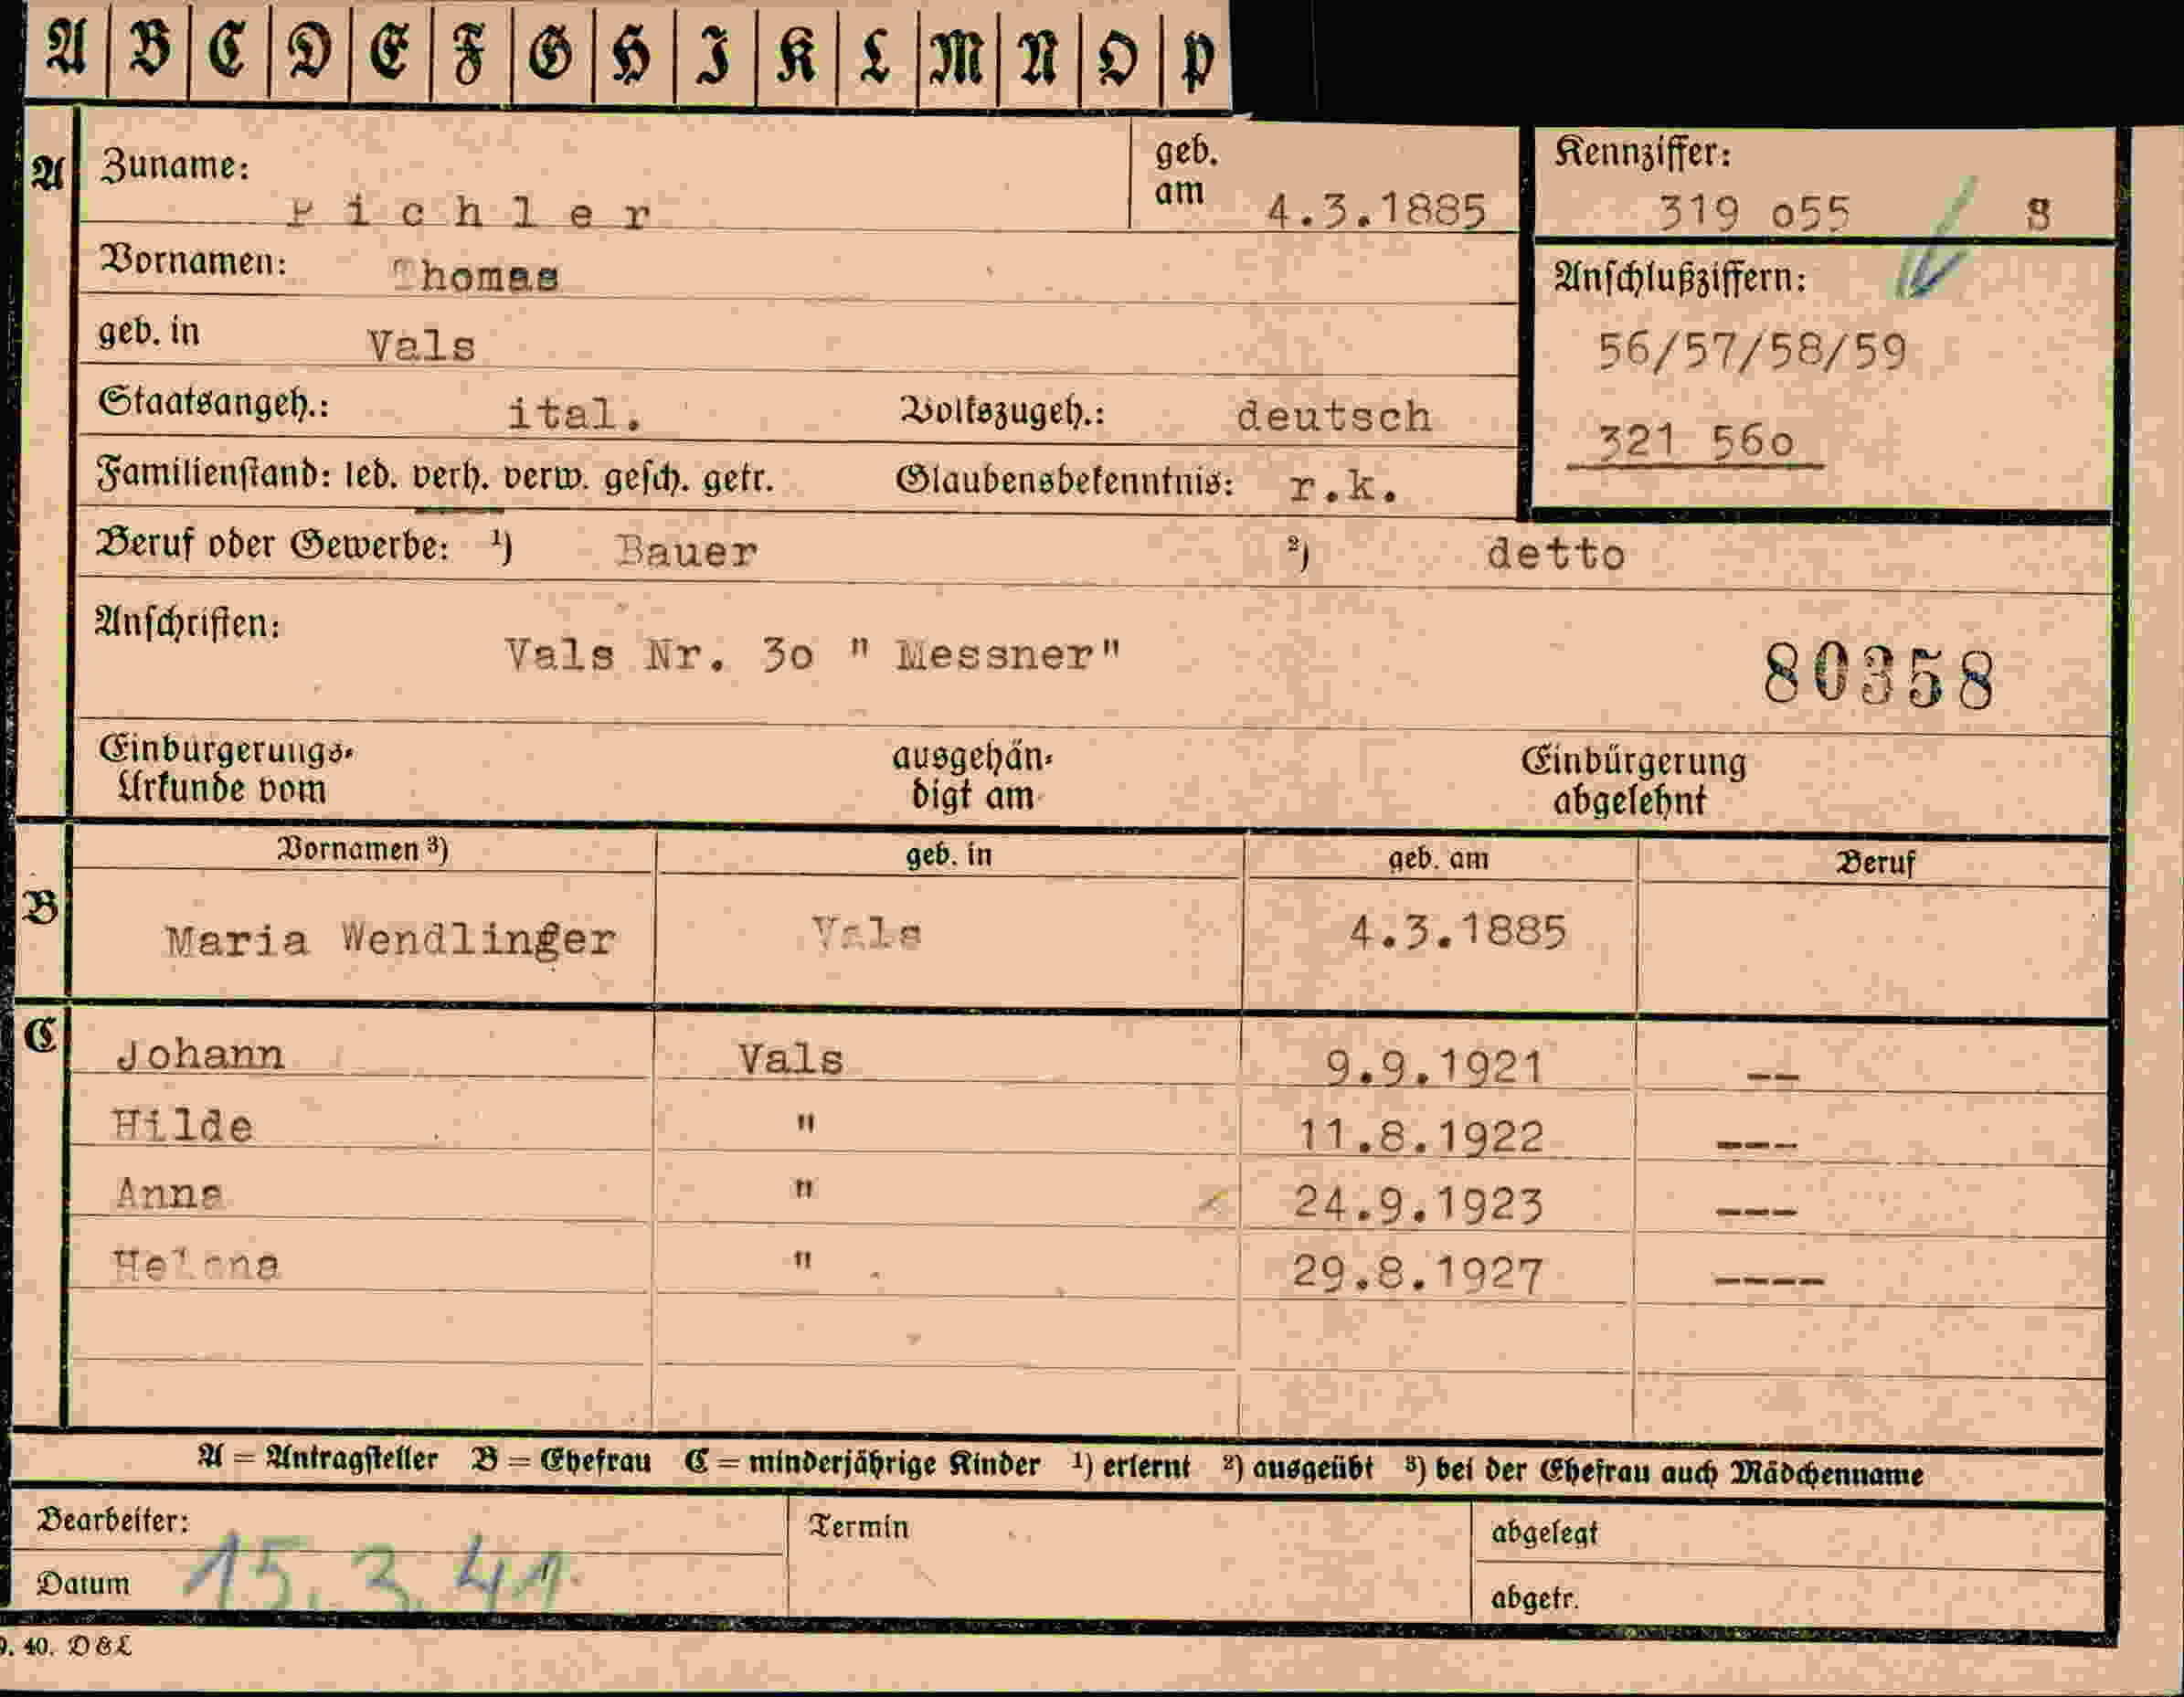 A B C D E F G H I K L M N O P
A Zuname: Pichler geb. am 4.3.1885
Kennziffer: 319 o55 8
Vornamen: Thomas
Anschlußziffern:
geb. in Vals
56/57/58/59
Staatsangeh.: ital. Volkszugeh.: deutsch
321 56o
Familienstand: led. verh. verw. gesch. getr. Glaubensbekenntnis: r.k.
Beruf oder Gewerbe: 1) Bauer 2) detto
Anschriften: Vals Nr. 3o " Messner"
80358
Einbürgerungs-Urkunde vom ausgehän-digt am Einbürgerung abgelehnt
Vornamen 3) geb. in geb. am Beruf
B Maria Wendlinger Vals 4.3.1885
C Johann Vals 9.9.1921 --
Hilde " 11.8.1922 ---
Anna " 24.9.1923 ---
Helena " 29.8.1927 ----
A = Antragsteller B = Ehefrau C = minderjährige Kinder 1) erlernt 2) ausgeübt 3) bei der Ehefrau auch Mädchenname
Bearbeiter: Termin abgelegt
Datum 15.3.41. abgetr.
9. 40. D&L